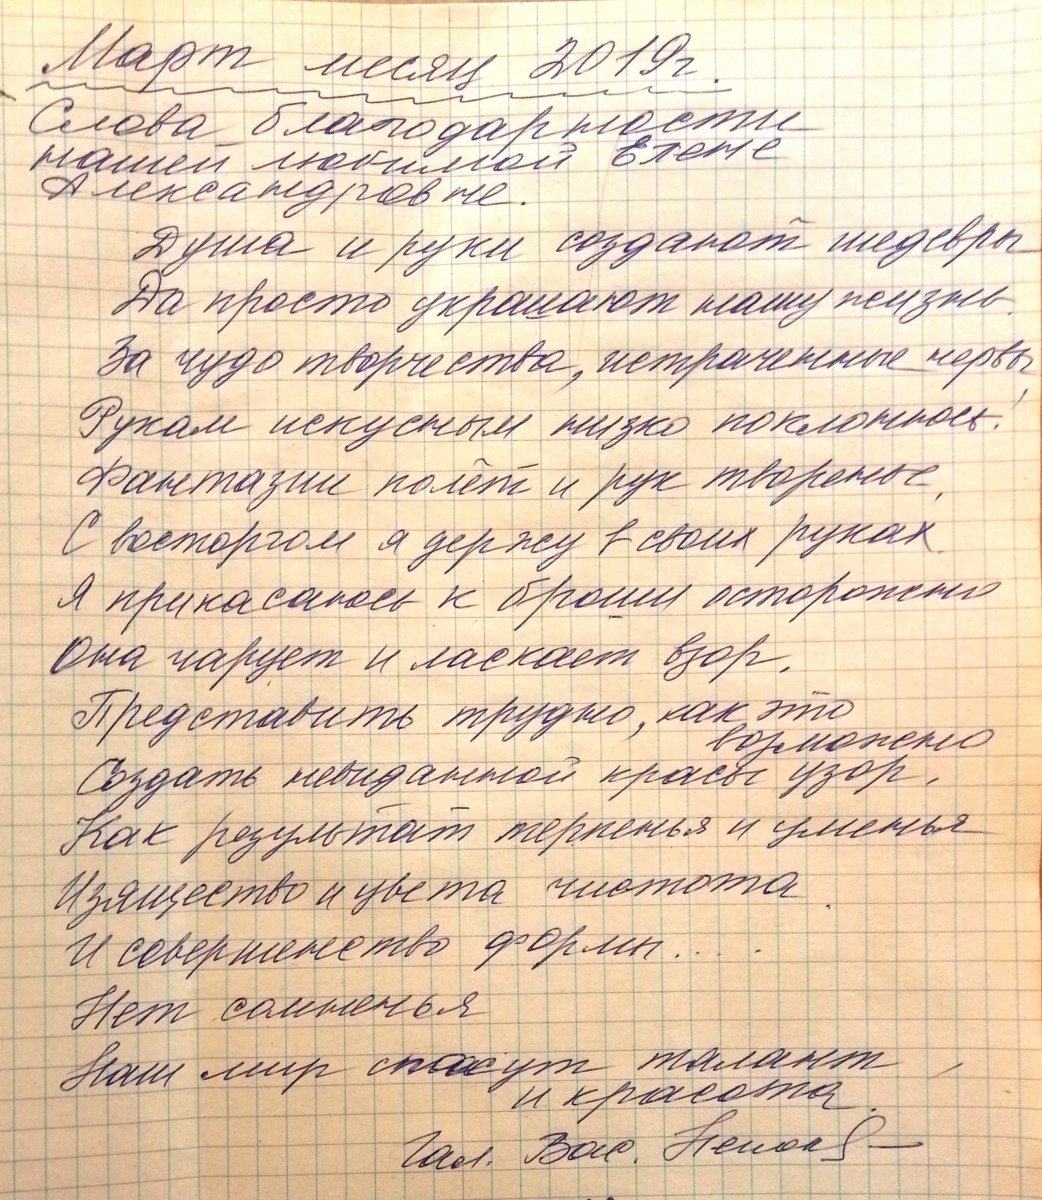 Март месяц 2019г.
Слова благодарности
нашей любимой Елене
Александровне.
Душа и руки создают шедевры
Да просто украшают нашу жизнь.
За чудо творчества, истраченные нервы
Рукам искусным низко поклонюсь!
Фантазии полёт и рук творенье,
С восторгом я держу в своих руках.
Я прикасаюсь к броши осторожно
Она чарует и ласкает взор.
Представить трудно, как это
возможно
Создать невиданной красы узор.
Как результат терпенья и уменья
Изящество и цвета чистота.
И совершенство формы.....
Нет сомненья
Наш мир спасут талант,
и красота.
Гал. Вас.